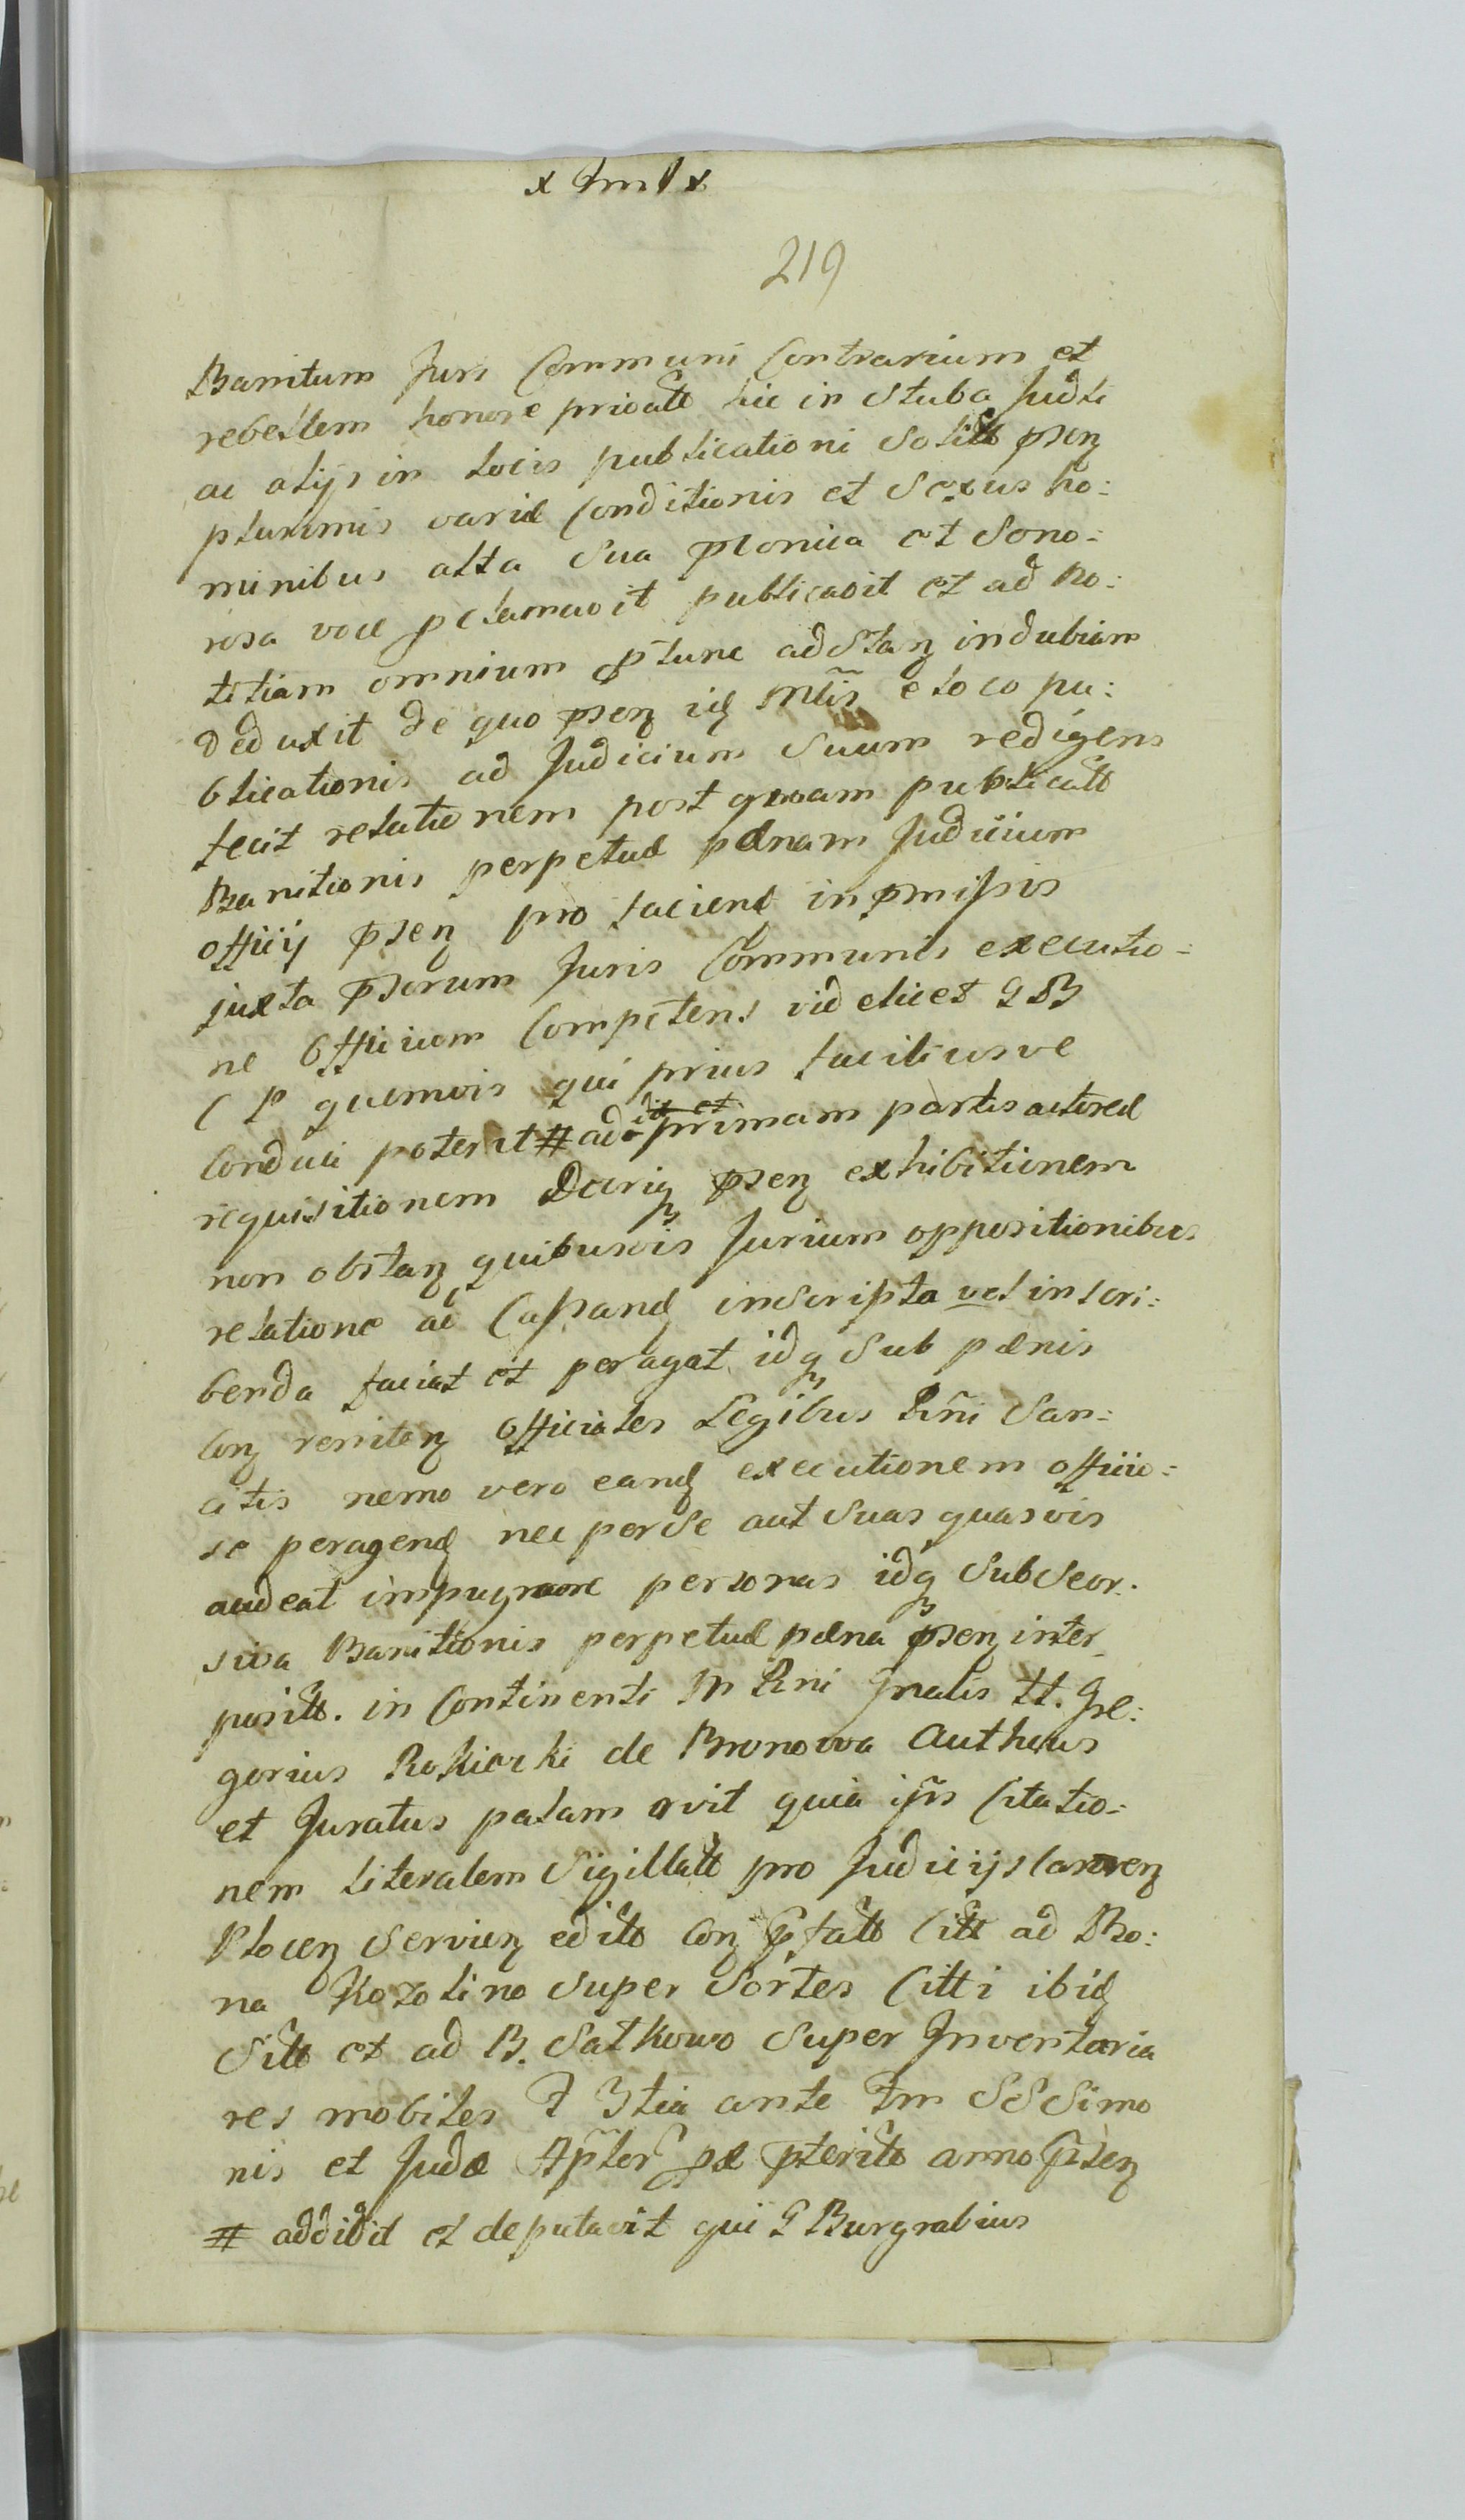 219
Banitum Juri Communi Contrarium et
rebellem honore privatt hic in Stuba Judli
ac alijs in locis publicationi Solitt psen
plurimis variæ Conditionis et Sexus ho:
minibus alta Sua ptonica et Sono:
rosa voce pclamavit publicavit et ad no:
titiam omnium ptunc adstan indubiam
deduxit de quo psen id Mtis e loco pu:
blicationis ad Judicium Suum redigens
fecit relationem post quam publicatt
Banitionis perpetuæ pœnam Judicium
officij psen pro faciend in pmissis
juxta pscrum Juris Communis executio=
ne Officium Competens videlicet G B
C P quemvis qui prius faciliusve
Conduci poterit # ad primam partis actoreæ
requisitionem Decriq psen exhibitionem
non obstan quibusvis Jurium oppositionibus
relatione ac Cassand inscripta vel inscri:
benda faciat et peragat idq Sub pœnis
Con reniten Officiales Legibus Rni San:
citis nemo vero eand executionem officio=
se peragend nec per Se aut Suas quasvis
audeat impugnare personas idq Sub Seor.
siva Banitionis perpetuæ pœna psen inter
positt. in Continenti M Rni Gnalis tt. Gre:
gorius Rokicki de Bronowa Authcus
et Juratus palam rvit quia ijs Citatio:
nem literalem Sigillatt pro Judicijs Castren
Plocen Servien editt Con pfatt Citt ad Bo:
na Kozolino Super Sortes Citti ibid
Sitt et ad B. Satkowo Super Inventaria
res mobiles F 3tia ante Fm SS Simo
nis et Judæ Aplor pæ pteritt anno pten
# addidit et deputavit qui G Burgrabius